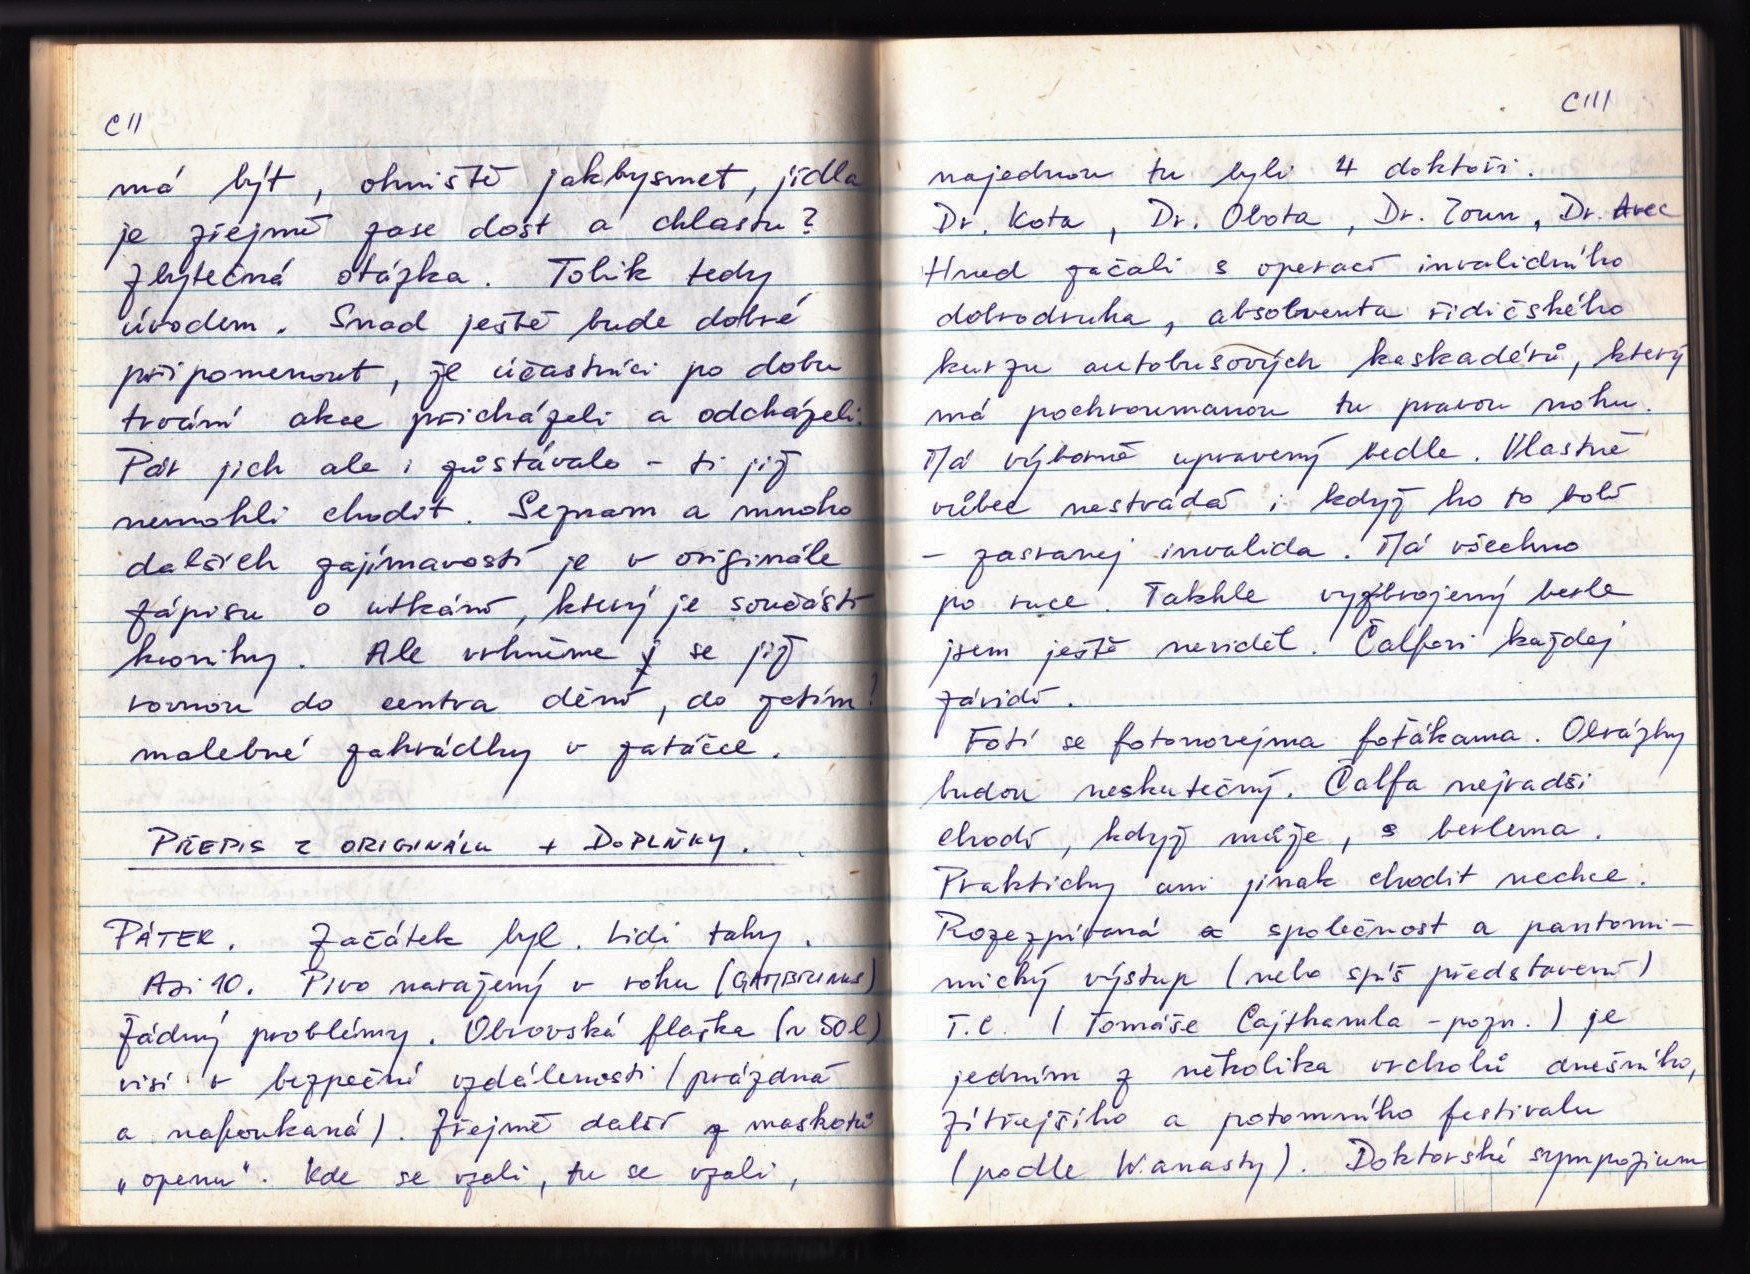 CII
má být, ohniště jakbysmet, jídla
je zřejmě zase dost a chlastu?
Zbytečná otázka. Tolik tedy
úvodem. Snad ještě bude dobré
připomenout, že účastníci po dobu
trvání akce přicházeli a odcházeli.
Pár jich ale i zůstávalo - ti již
nemohli chodit. Seznam a mnoho
dalších zajímavostí je v originále
zápisu o utkání, který je součástí
kroniky. Ale vrhněme se již
rovnou do centra dění, do zatím!
malebné zahrádky v zatáčce.
PŘEPIS Z ORIGINÁLU + DOPLŇKY.
PÁTEK. Začátek byl. Lidi tahy.
Asi 10. Pivo naražený v rohu (GAMBRINUS)
Žádný problémy. Obrovská flaška (v 50 l)
visí v bezpečný vzdálenosti (prázdná
a nafoukaná). Zřejmě další z maskotů
„openu“. Kde se vzali, tu se vzali,
CIII
najednou tu byli 4 doktoři.
Dr. Kota, Dr. Obota, Dr. Zoun, Dr. Avec
Hned začali s operací invalidního
dobrodruha, absolventa řidičského
kurzu autobusových kaskadérů, který
má pochroumanou tu pravou nohu.
Má výborně upravený bedle. Vlastně
vůbec nestrádá i když ho to bolí
- zasranej invalida. Má všechno
po ruce. Takhle vyzbrojený berle
jsem ještě neviděl. Čalfovi každej
závidí.
Fotí se fotonovejma foťákama. Obrázky
budou neskutečný. Čalfa nejradši
chodí, když může, s berlema.
Prakticky ani jinak chodit nechce.
Rozezpívaná společnost a pantomi-
mický výstup (nebo spíš představení)
T.C. (Tomáše Cajthamla - pozn.) je
jedním z několika vrcholů dnešního,
zítřejšího a potomního festivalu
(podle Wanasty). Doktorské sympozium